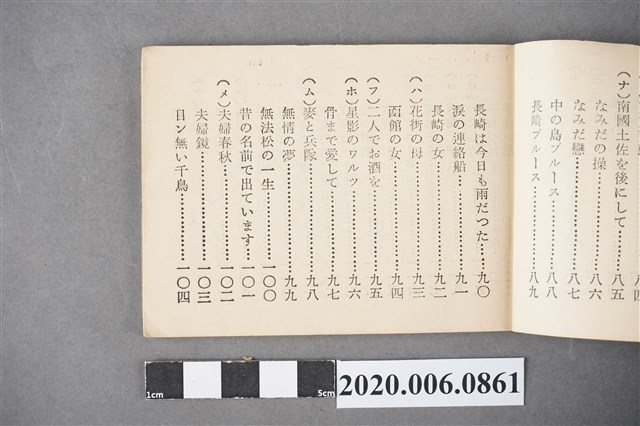 (ナ)南國土佐を後にして…………八五
なみだの操…………八六
なみだ戀…………八七
中の島ブルース…………八八
長崎ブルース…………八九
長崎は今日も雨だつた…………九〇
涙の連絡船…………九一
長崎の女…………九二
(ハ)花街の母…………九三
函館の女…………九四
(フ)二人でお酒を…………九五
(ホ)星影のワルツ…………九六
骨まで愛して…………九七
(ム)麥と兵隊…………九八
無情の夢…………九九
無法松の一生…………一〇〇
昔の名前で出ています…………一〇一
(メ)夫婦春秋…………一〇二
夫婦鏡…………一〇三
目ン無い千鳥…………一〇四
1cm
5cm
2020.006.0861